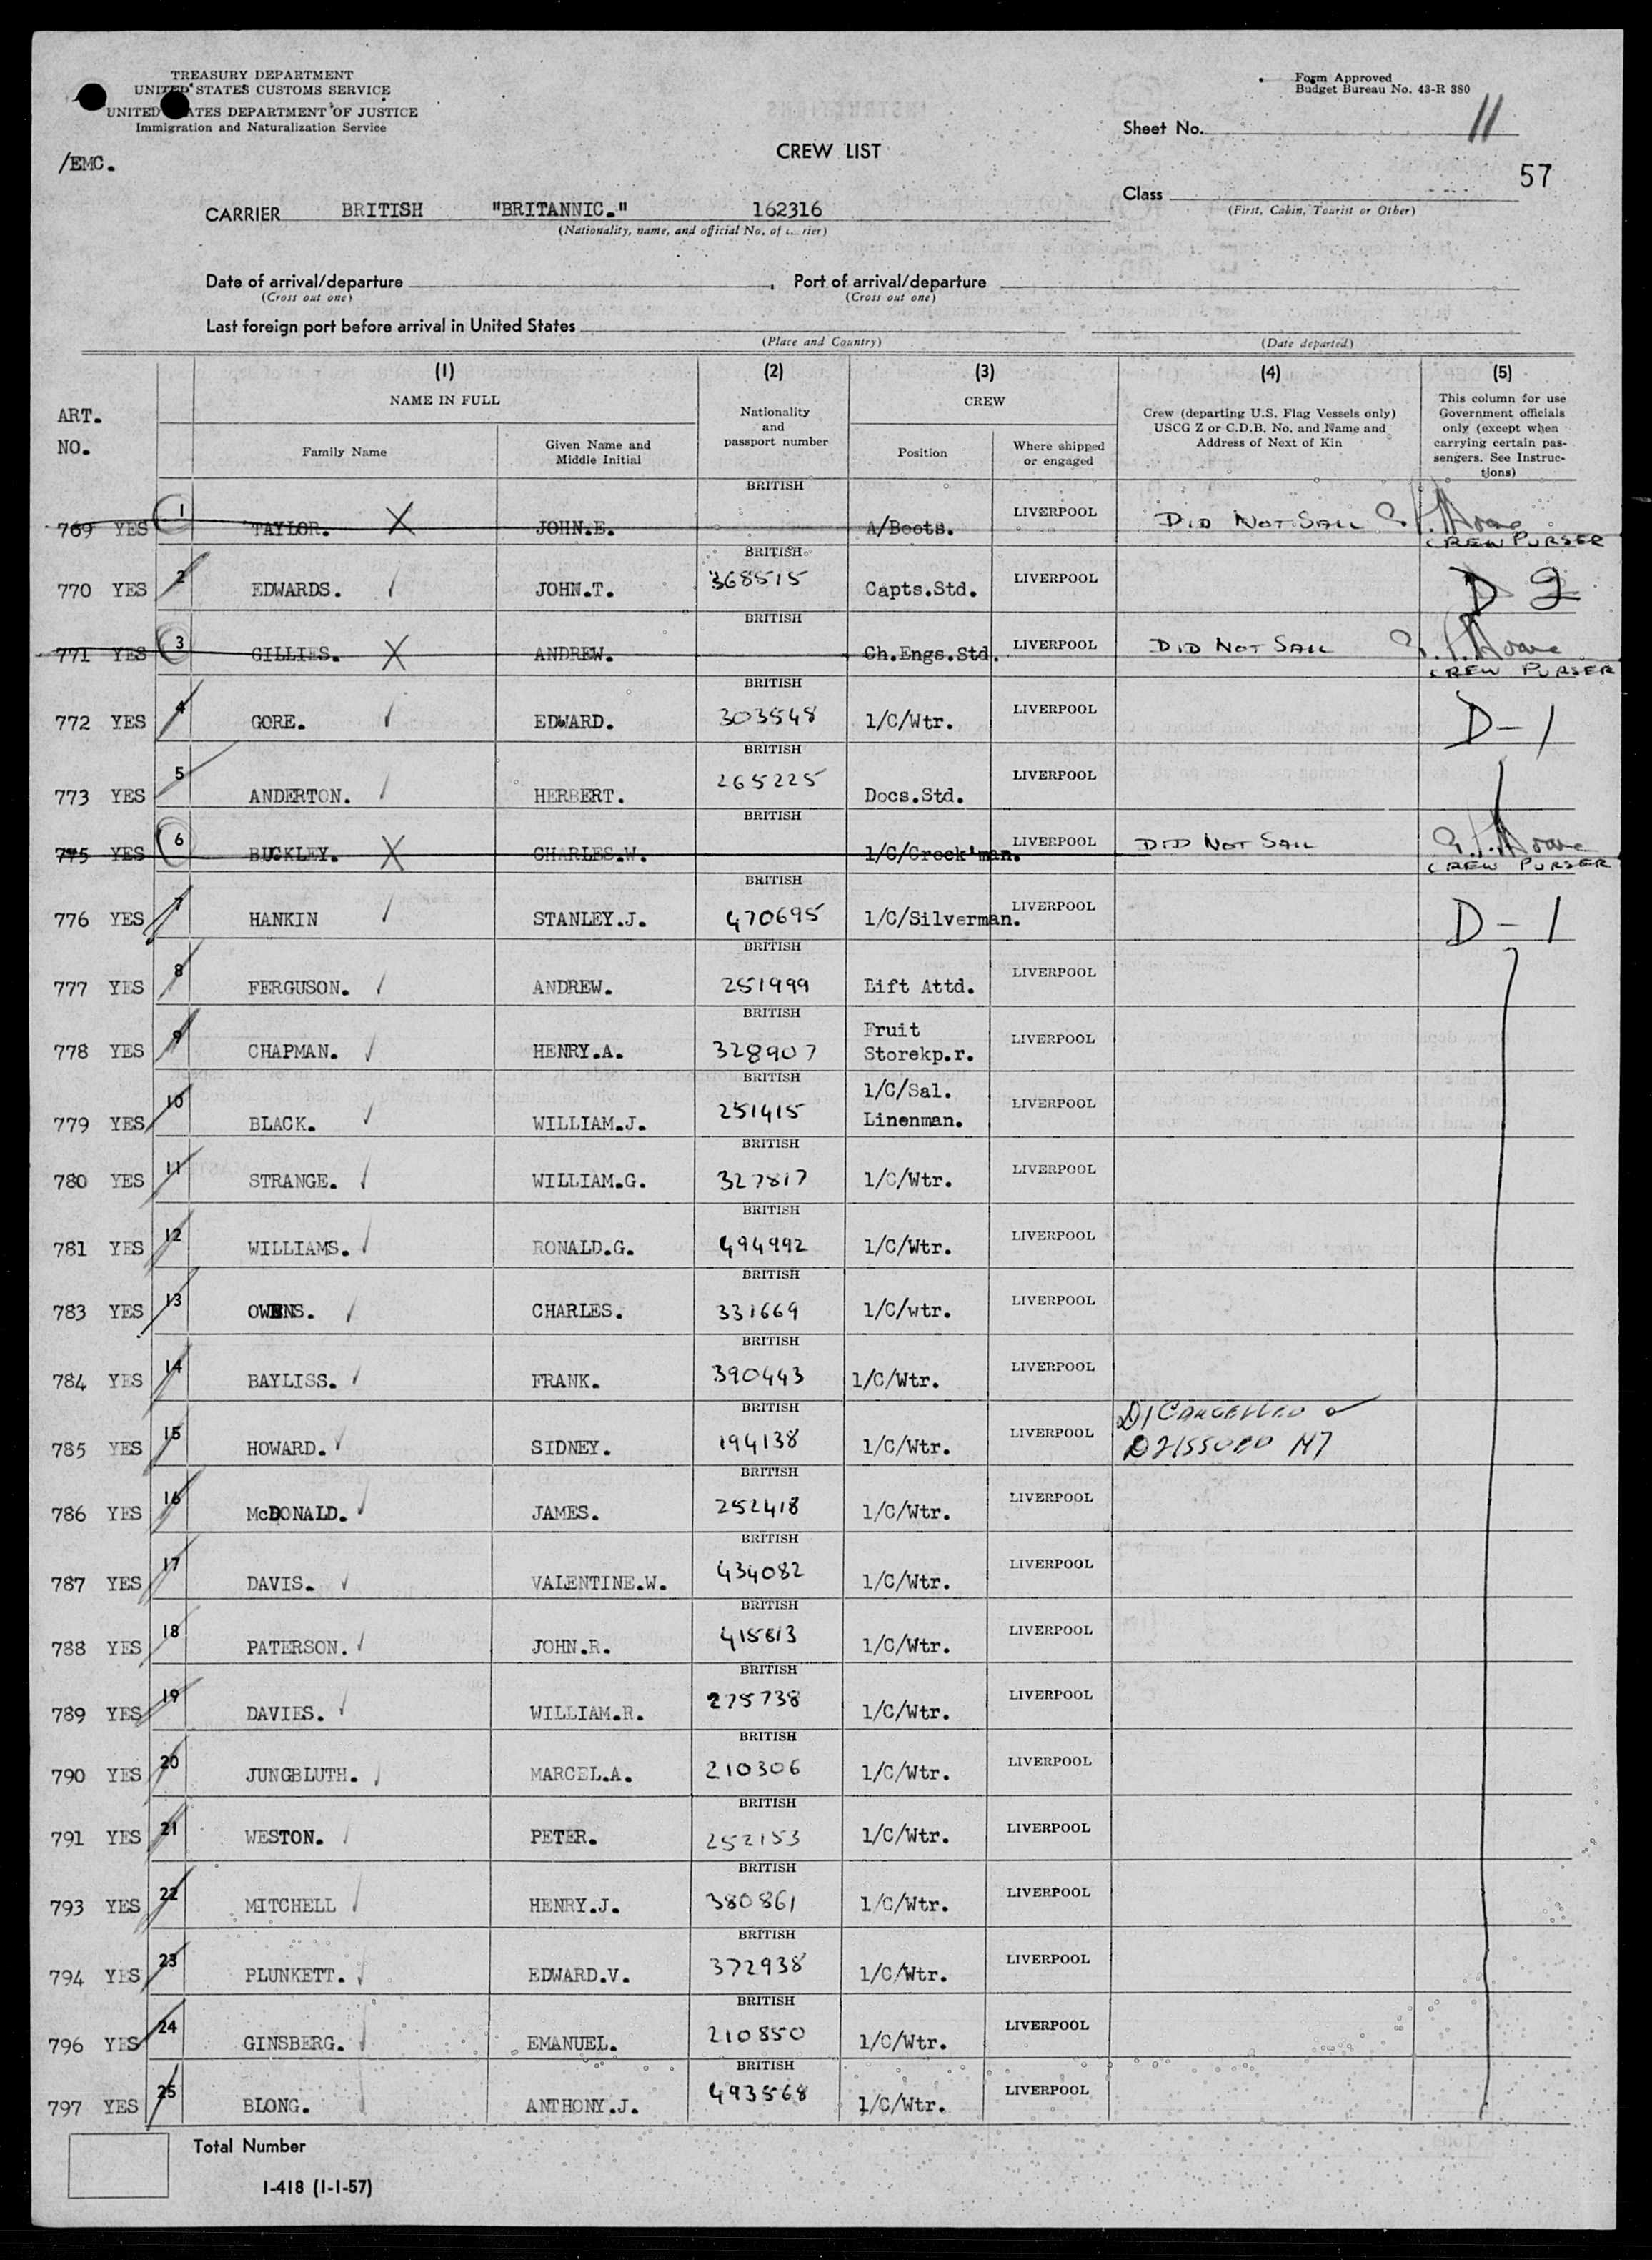 TREASURY DEPARTMENT
UNITED STATES CUSTOMS SERVICE
UNITED STATES DEPARTMENT OF JUSTICE
Immigration and Naturalization Service
/EMC.
Form Approved
Budget Bureau No. 43-R 380
Sheet No. 11
57
CREW LIST
Class
(First, Cabin, Tourist or Other)
CARRIER BRITISH "BRITANNIC." 162316
(Nationality, name, and official No. of carrier)
Date of arrival/departure , Port of arrival/departure
(Cross out one) (Cross out one)
Last foreign port before arrival in United States
(Place and Country) (Date departed)
ART. NO.
(1) NAME IN FULL
Family Name
Given Name and Middle Initial
(2) Nationality and passport number
(3) CREW
Position
Where shipped or engaged
(4) Crew (departing U.S. Flag Vessels only) USCG Z or C.D.B. No. and Name and Address of Next of Kin
(5) This column for use Government officials only (except when carrying certain passengers. See Instructions)
769 YES 1 TAYLOR. X JOHN.E. BRITISH A/Boots. LIVERPOOL DID NOT SAIL CREW PURSER
770 YES 2 EDWARDS. JOHN.T. BRITISH 368515 Capts.Std. LIVERPOOL D 2
771 YES 3 GILLIES. X ANDREW. BRITISH Ch.Engs.Std. LIVERPOOL DID NOT SAIL CREW PURSER
772 YES 4 GORE. EDWARD. BRITISH 303548 1/C/Wtr. LIVERPOOL D-1
773 YES 5 ANDERTON. HERBERT. BRITISH 265225 Docs.Std. LIVERPOOL
775 YES 6 BUCKLEY. X CHARLES.W. BRITISH 1/C/Crock'man. LIVERPOOL DID NOT SAIL CREW PURSER
776 YES 7 HANKIN STANLEY.J. BRITISH 470695 1/C/Silverman. LIVERPOOL D-1
777 YES 8 FERGUSON. ANDREW. BRITISH 251999 Lift Attd. LIVERPOOL
778 YES 9 CHAPMAN. HENRY.A. BRITISH 328907 Fruit Storekp.r. LIVERPOOL
779 YES 10 BLACK. WILLIAM.J. BRITISH 251415 1/C/Sal. Linenman. LIVERPOOL
780 YES 11 STRANGE. WILLIAM.G. BRITISH 327817 1/C/Wtr. LIVERPOOL
781 YES 12 WILLIAMS. RONALD.G. BRITISH 494992 1/C/Wtr. LIVERPOOL
783 YES 13 OWENS. CHARLES. BRITISH 331669 1/C/wtr. LIVERPOOL
784 YES 14 BAYLISS. FRANK. BRITISH 390443 1/C/Wtr. LIVERPOOL
785 YES 15 HOWARD. SIDNEY. BRITISH 194138 1/C/Wtr. LIVERPOOL D1 CANCELLED D2 ISSUED
786 YES 16 McDONALD. JAMES. BRITISH 252418 1/C/Wtr. LIVERPOOL
787 YES 17 DAVIS. VALENTINE.W. BRITISH 434082 1/C/Wtr. LIVERPOOL
788 YES 18 PATERSON. JOHN.R. BRITISH 415613 1/C/Wtr. LIVERPOOL
789 YES 19 DAVIES. WILLIAM.R. BRITISH 275738 1/C/Wtr. LIVERPOOL
790 YES 20 JUNGBLUTH. MARCEL.A. BRITISH 210306 1/C/Wtr. LIVERPOOL
791 YES 21 WESTON. PETER. BRITISH 252153 1/C/Wtr. LIVERPOOL
793 YES 22 MITCHELL HENRY.J. BRITISH 380861 1/C/Wtr. LIVERPOOL
794 YES 23 PLUNKETT. EDWARD.V. BRITISH 372938 1/C/Wtr. LIVERPOOL
796 YES 24 GINSBERG. EMANUEL. BRITISH 210850 1/C/Wtr. LIVERPOOL
797 YES 25 BLONG. ANTHONY.J. BRITISH 493568 1/C/Wtr. LIVERPOOL
Total Number
I-418 (1-1-57)